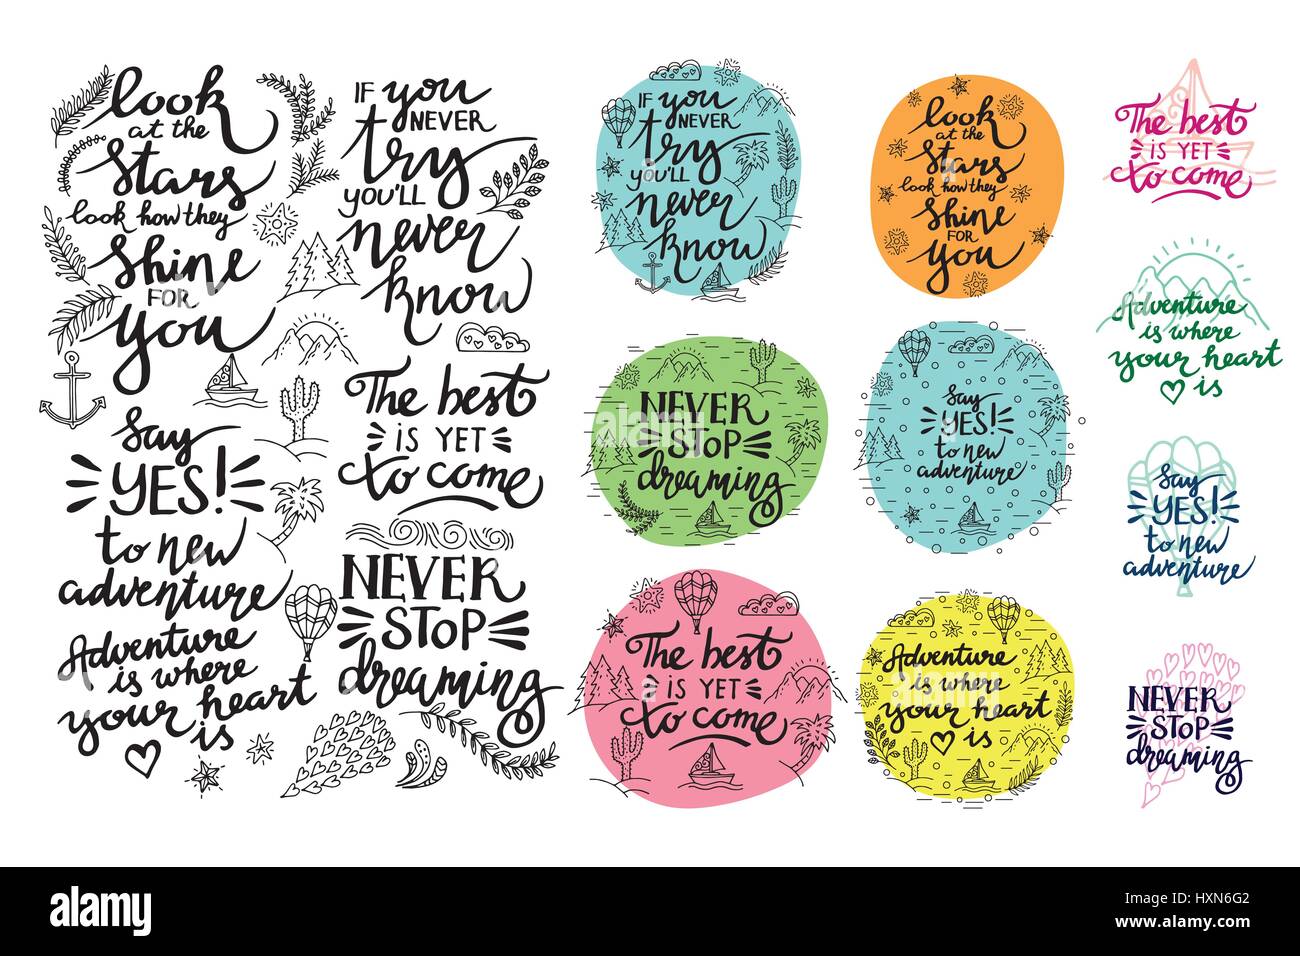 look
at the
stars
look how they
shine
FOR
you
IF you
NEVER
try
YOU'LL
never
know
say
YES!
to new
adventure
The best
IS YET
to come
Adventure
is where
your heart
is
NEVER
STOP
dreaming
IF you
NEVER
try
YOU'LL
never
know
look
at the
stars
look how they
shine
FOR
you
NEVER
STOP
dreaming
say
YES!
to new
adventure
The best
IS YET
to come
Adventure
is where
your heart
is
The best
IS YET
to come
Adventure
is where
your heart
is
say
YES!
to new
adventure
NEVER
STOP
dreaming
alamy
alamy
Image ID: HXN6G2
www.alamy.com